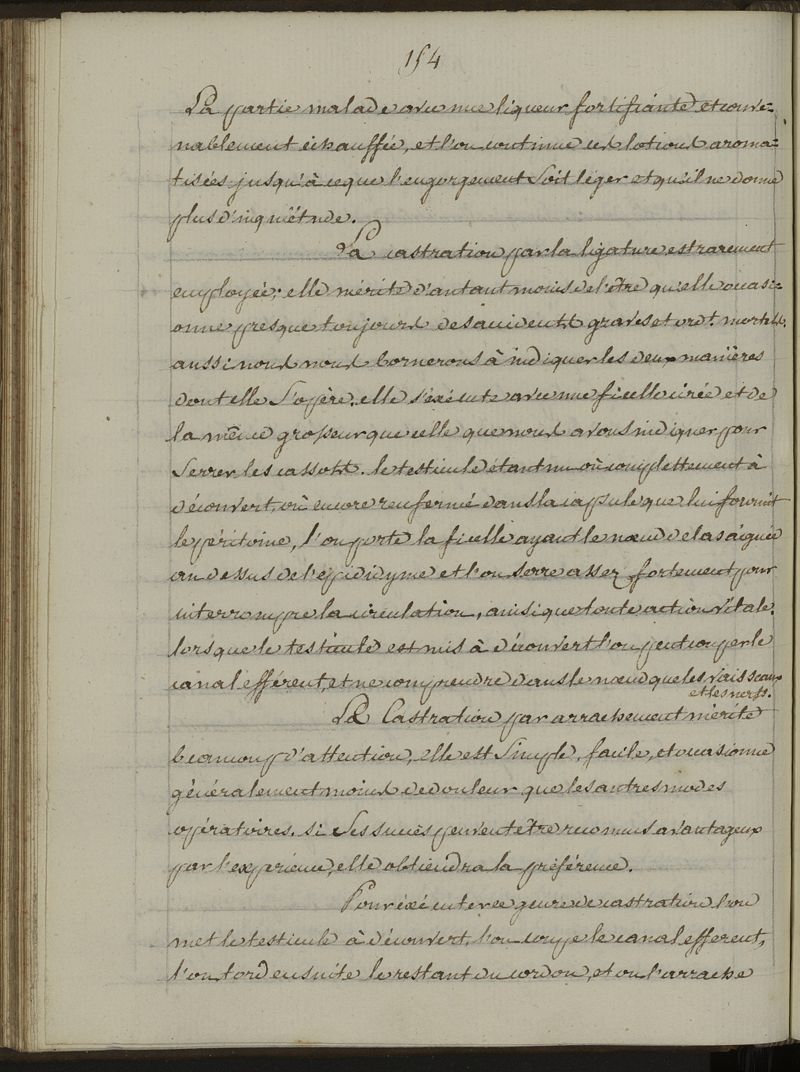 154
La partie malade avec une liqueur fortifiante et conve-
nablement échauffée, et l'on continue ces lotions aroma-
tisées jusqu'à ce que l'engorgement soit léger et qu'il ne donne
plus d'inquiëtude.
La castration par la ligature est rarement
employée; elle mérite d'autant moins de l'être qu'elle occasi-
onne presque toujours des accidents graves et ord.t mortels.
aussi nous nous bornerons à indiquer les deux manières
dont elle s'opère. elle s'exécute avec une ficelle cirée et de
la même grosseur que celle que nous avons indiquer pour
serrer les cassots. le testicule étant nu où complettement à
découvert, où encore renfermé dans la capsule que lui fournit
le péritoine, l'on porte la ficelle ayant le nœud de la saignée
au dessus de l'epididyme et l'on serre assez fortement pour
interrompre la circulation, ainsi que toute action vitale.
lorsque le testicule est mis à découvert l'on peut couper le
canal efférent, et ne comprendre dans le nœud que les vaisseaux
et les nerfs.
La Castration par arrachement mérite
beaucoup d'attention, elle est simple, facile, et occasionne
généralement moins de douleur que les autres modes
opératoires. si ses succès peuvent être reconnus avantageux
par l'expérience, elle obtiendra la préférence.
Pour exécuter ce genre de castration l'on
met le testicule à découvert, l'on coupe le canal efferent,
l'on tord ensuite le restant du cordon, et on l'arrache